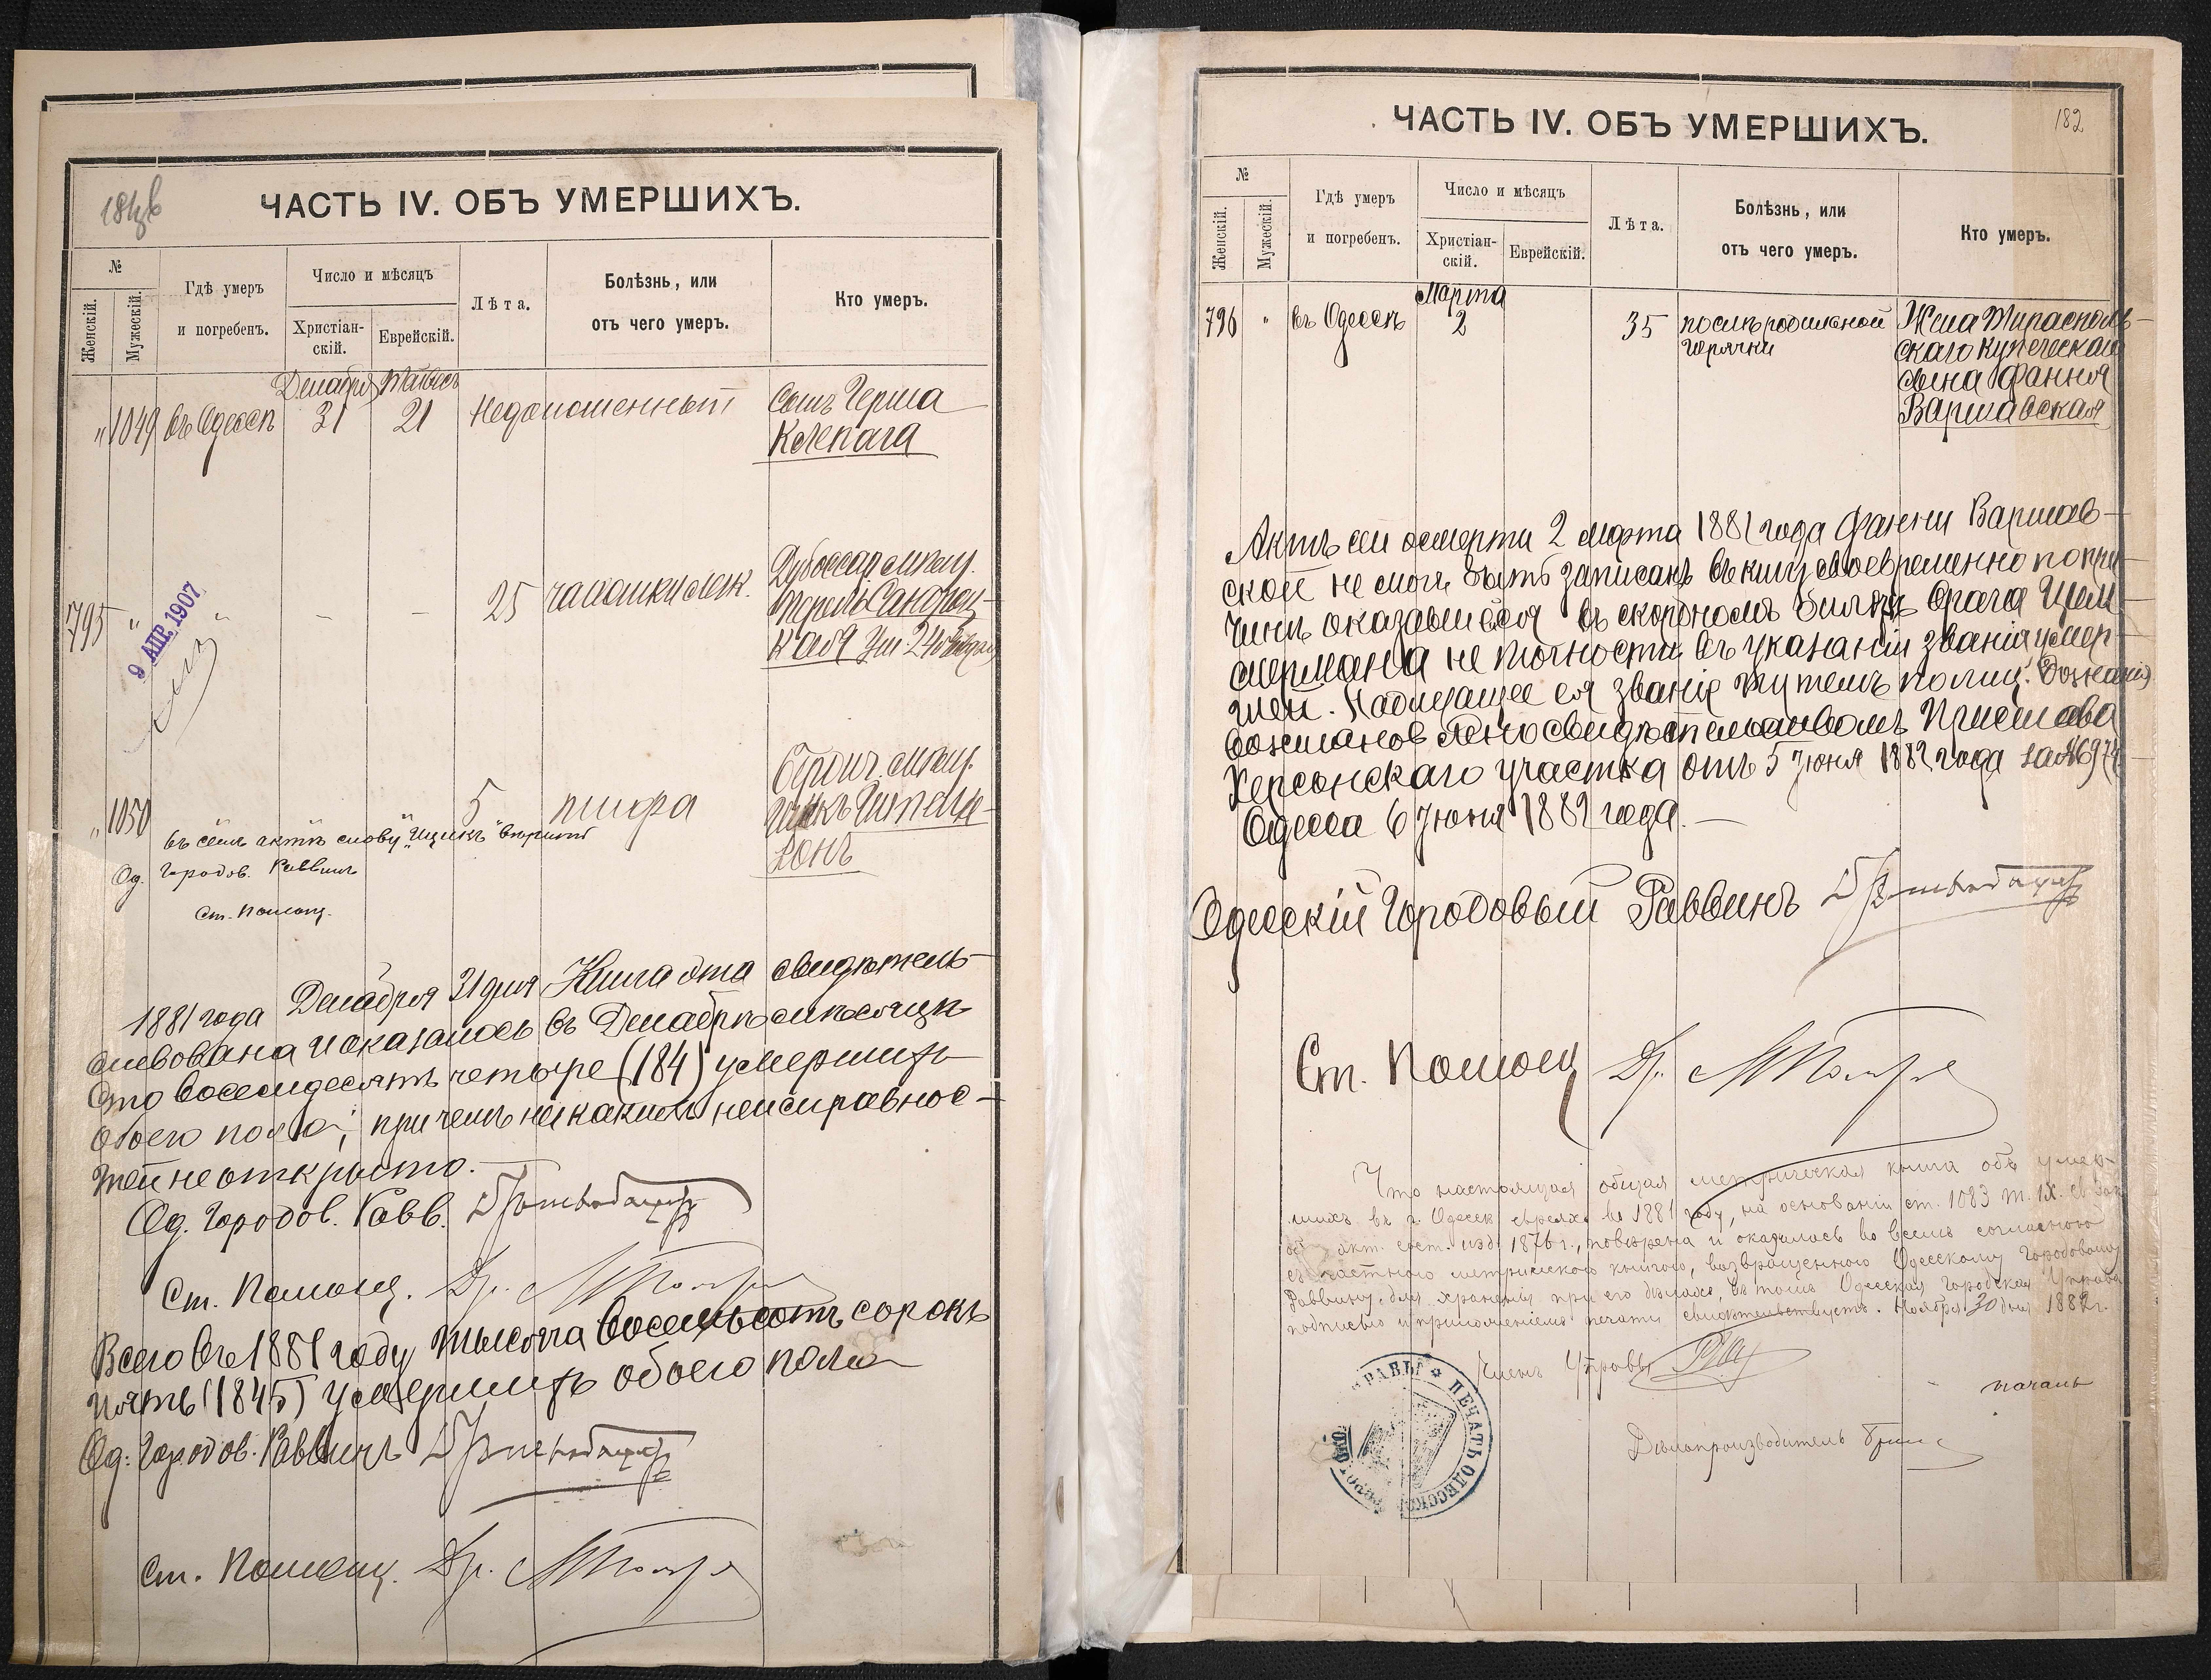 181 об
ЧАСТЬ IV. ОБЪ УМЕРШИХЪ.
№
Женскій.
Мужескій.
Гдѣ умеръ
и погребенъ.
Число и мѣсяцъ
Христіан-
скій.
Еврейскій.
Лѣта.
Болѣзнь, или
отъ чего умеръ.
Кто умеръ.
Декабря
"
1049
въ Одессѣ
31
21
Недоношенный
Сынъ Герша
Колепага
795
"
9 АПР. 1907
-
-
25
чахотки лег.
Дубоссар. мѣщ.
"
1050
5
тифа
мѣщ.
Ицикъ
въ семъ актѣ слову "Ицикъ" вѣрить
Од. Городов. Раввинъ
Ст. Помощ.
1881 года Декабря 31 дня Книга эта свидѣтель-
ствована и оказалось въ Декабрѣ мѣсяцѣ
сто восемьдесятъ четыре (184) умершихъ
обоего пола; при чемъ никакихъ неисправнос-
тей не открыто.
Од. Городов. Равв.
Ст. Помощ. Др.
Всего въ 1881 году тысяча восемьсотъ сорокъ
пять (1845) умершихъ обоего пола
Од. Городов. Раввинъ
Ст. Помощ. Др.
182
ЧАСТЬ IV. ОБЪ УМЕРШИХЪ.
№
Женскій.
Мужескій.
Гдѣ умеръ
и погребенъ.
Число и мѣсяцъ
Христіан-
скій.
Еврейскій.
Лѣта.
Болѣзнь, или
отъ чего умеръ.
Кто умеръ.
Марта
796
"
въ Одессѣ
2
35
послѣродильной
горячки
Жена Тирасполь-
скаго купеческаго
сына Фання
Варшавская
Актъ сей о смерти 2 марта 1881 года Фанни Варшав-
ской не могъ быть записанъ въ книгу своевременно по при-
чинѣ оказавшейся въ скорбномъ билетѣ врача Цим-
мермана не точности въ указаніи званія умер-
шей. Надлежащее ея званіе путемъ полиц. дознанія
возстановлено свидѣтельствомъ Пристава
Херсонскаго участка отъ 5 Іюня 1882 года за № 6974
Одесса 6 Іюня 1882 года. —
Одесскій Городовый Раввинъ
Ст. Помощ Др.
Что настоящая общая метрическая книга объ умер-
шихъ въ г. Одессѣ евреяхъ въ 1881 году, на основаніи ст. 1083 т. IX. Св. Зак.
акт. сост. изд. 1876 г., повѣрена и оказалась во всемъ согласною
съ частною метрическою книгою, возвращенною Одесскому Городовому
Раввину для храненія при его дѣлахъ, въ томъ Одесская Городская Управа
подписью и приложеніемъ печати свидѣтельствуетъ. Ноября 30 дня 1882 г.
Членъ Управы
ПЕЧАТЬ ОДЕССКОЙ ГОРОДСКОЙ УПРАВЫ
Дѣлопроизводитель